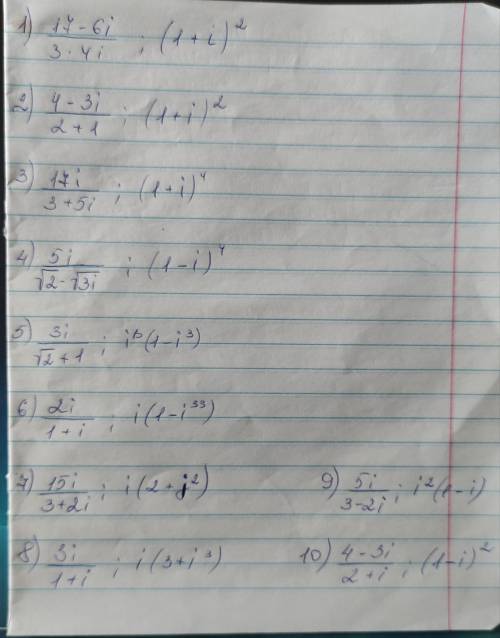 1) (17-6i)/(3·4i) ; (1+i)^2
2) (4-3i)/(2+1) ; (1+i)^2
3) 17i/(3+5i) ; (1+i)^4
4) 5i/(√2-√3i) ; (1-i)^4
5) 3i/(√2+1) ; (1-i^3)
6) 2i/(1+i) ; i(1-i^33)
7) 15i/(3+2i) ; i(2+i^2) 9) 5i/(3-2i) ; i^2(1-i)
8) 3i/(1+i) ; i(3+i^3) 10) (4-3i)/(2+i) ; (1-i)^2